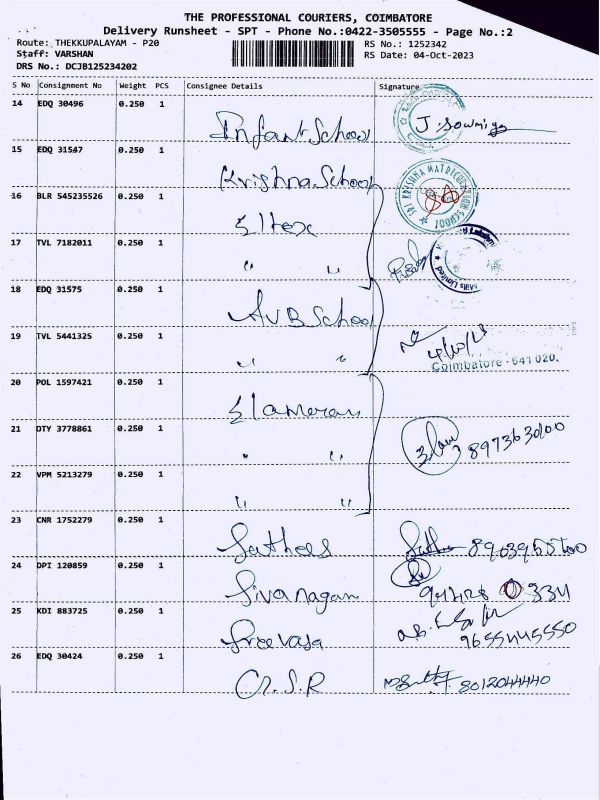 THE PROFESSIONAL COURIERS, COIMBATORE
Delivery Runsheet - SPT - Phone No.:0422-3505555 - Page No.:2
Route: THEKKUPALAYAM - P20
RS No.: 1252342
Staff: VARSHAN
RS Date: 04-Oct-2023
DRS No.: DCJB125234202
S No Consignment No Weight PCS Consignee Details Signature
14 EDQ 30496 0.250 1 Infant School J. Sowmiya
15 EDQ 31547 0.250 1 Krishna School
SRI KRISHNA MATRICULATION SCHOOL
16 BLR 545235526 0.250 1 Eltex
17 TVL 7182011 0.250 1 " "
Mills Limited
18 EDQ 31575 0.250 1 AVB School
19 TVL 5441325 0.250 1 " " 4/10/23
Coimbatore - 641 020.
20 POL 1597421 0.250 1 Elameran
21 DTY 3778861 0.250 1 " "
22 VPM 5213279 0.250 1 " "
23 CNR 1752279 0.250 1 Sathees
24 DPI 120859 0.250 1 Siva nagam
25 KDI 883725 0.250 1 Sreevasa 9655445550
26 EDQ 30424 0.250 1 G.S.R 8012044440